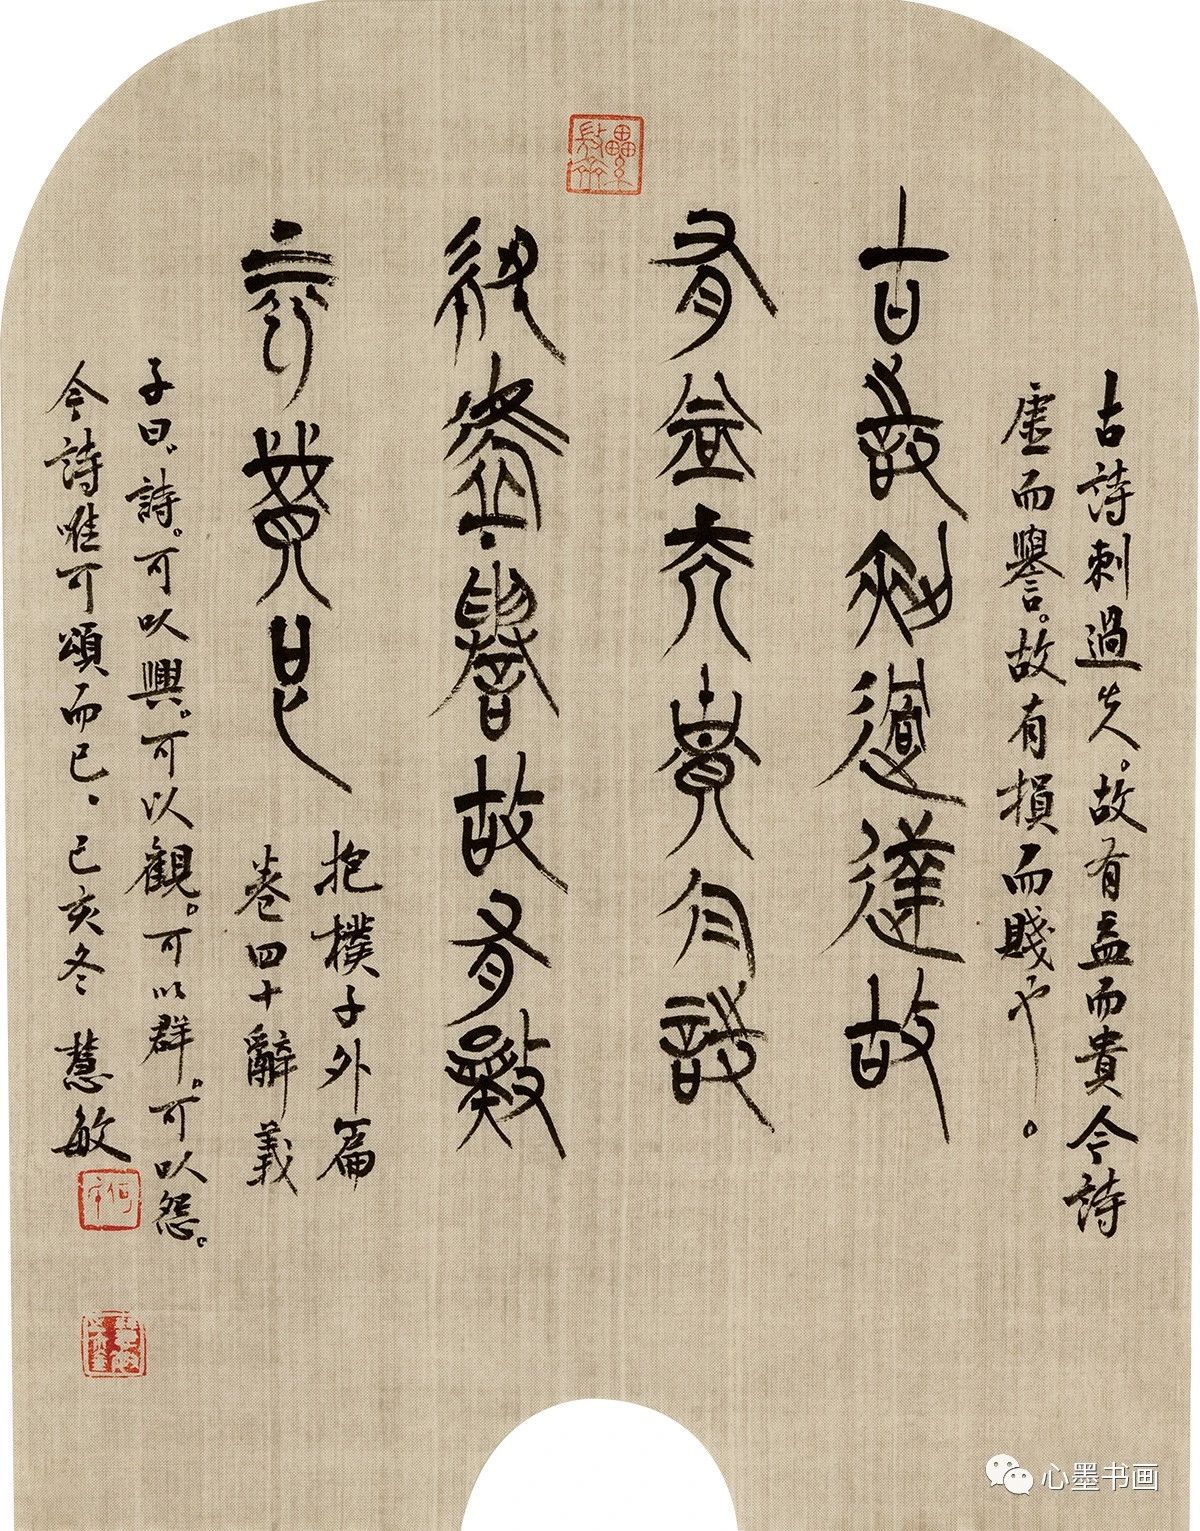 古詩刺過失。故有益而貴今詩
虛而譽。故有損而賤也。
古詩刺過達故
有益而貴今詩
純虛譽故有損
而賤也
抱樸子外篇
卷四十辭義
子曰、詩。可以興。可以觀。可以群。可以怨。
今詩唯可頌而已、己亥冬 慧敏
心墨书画